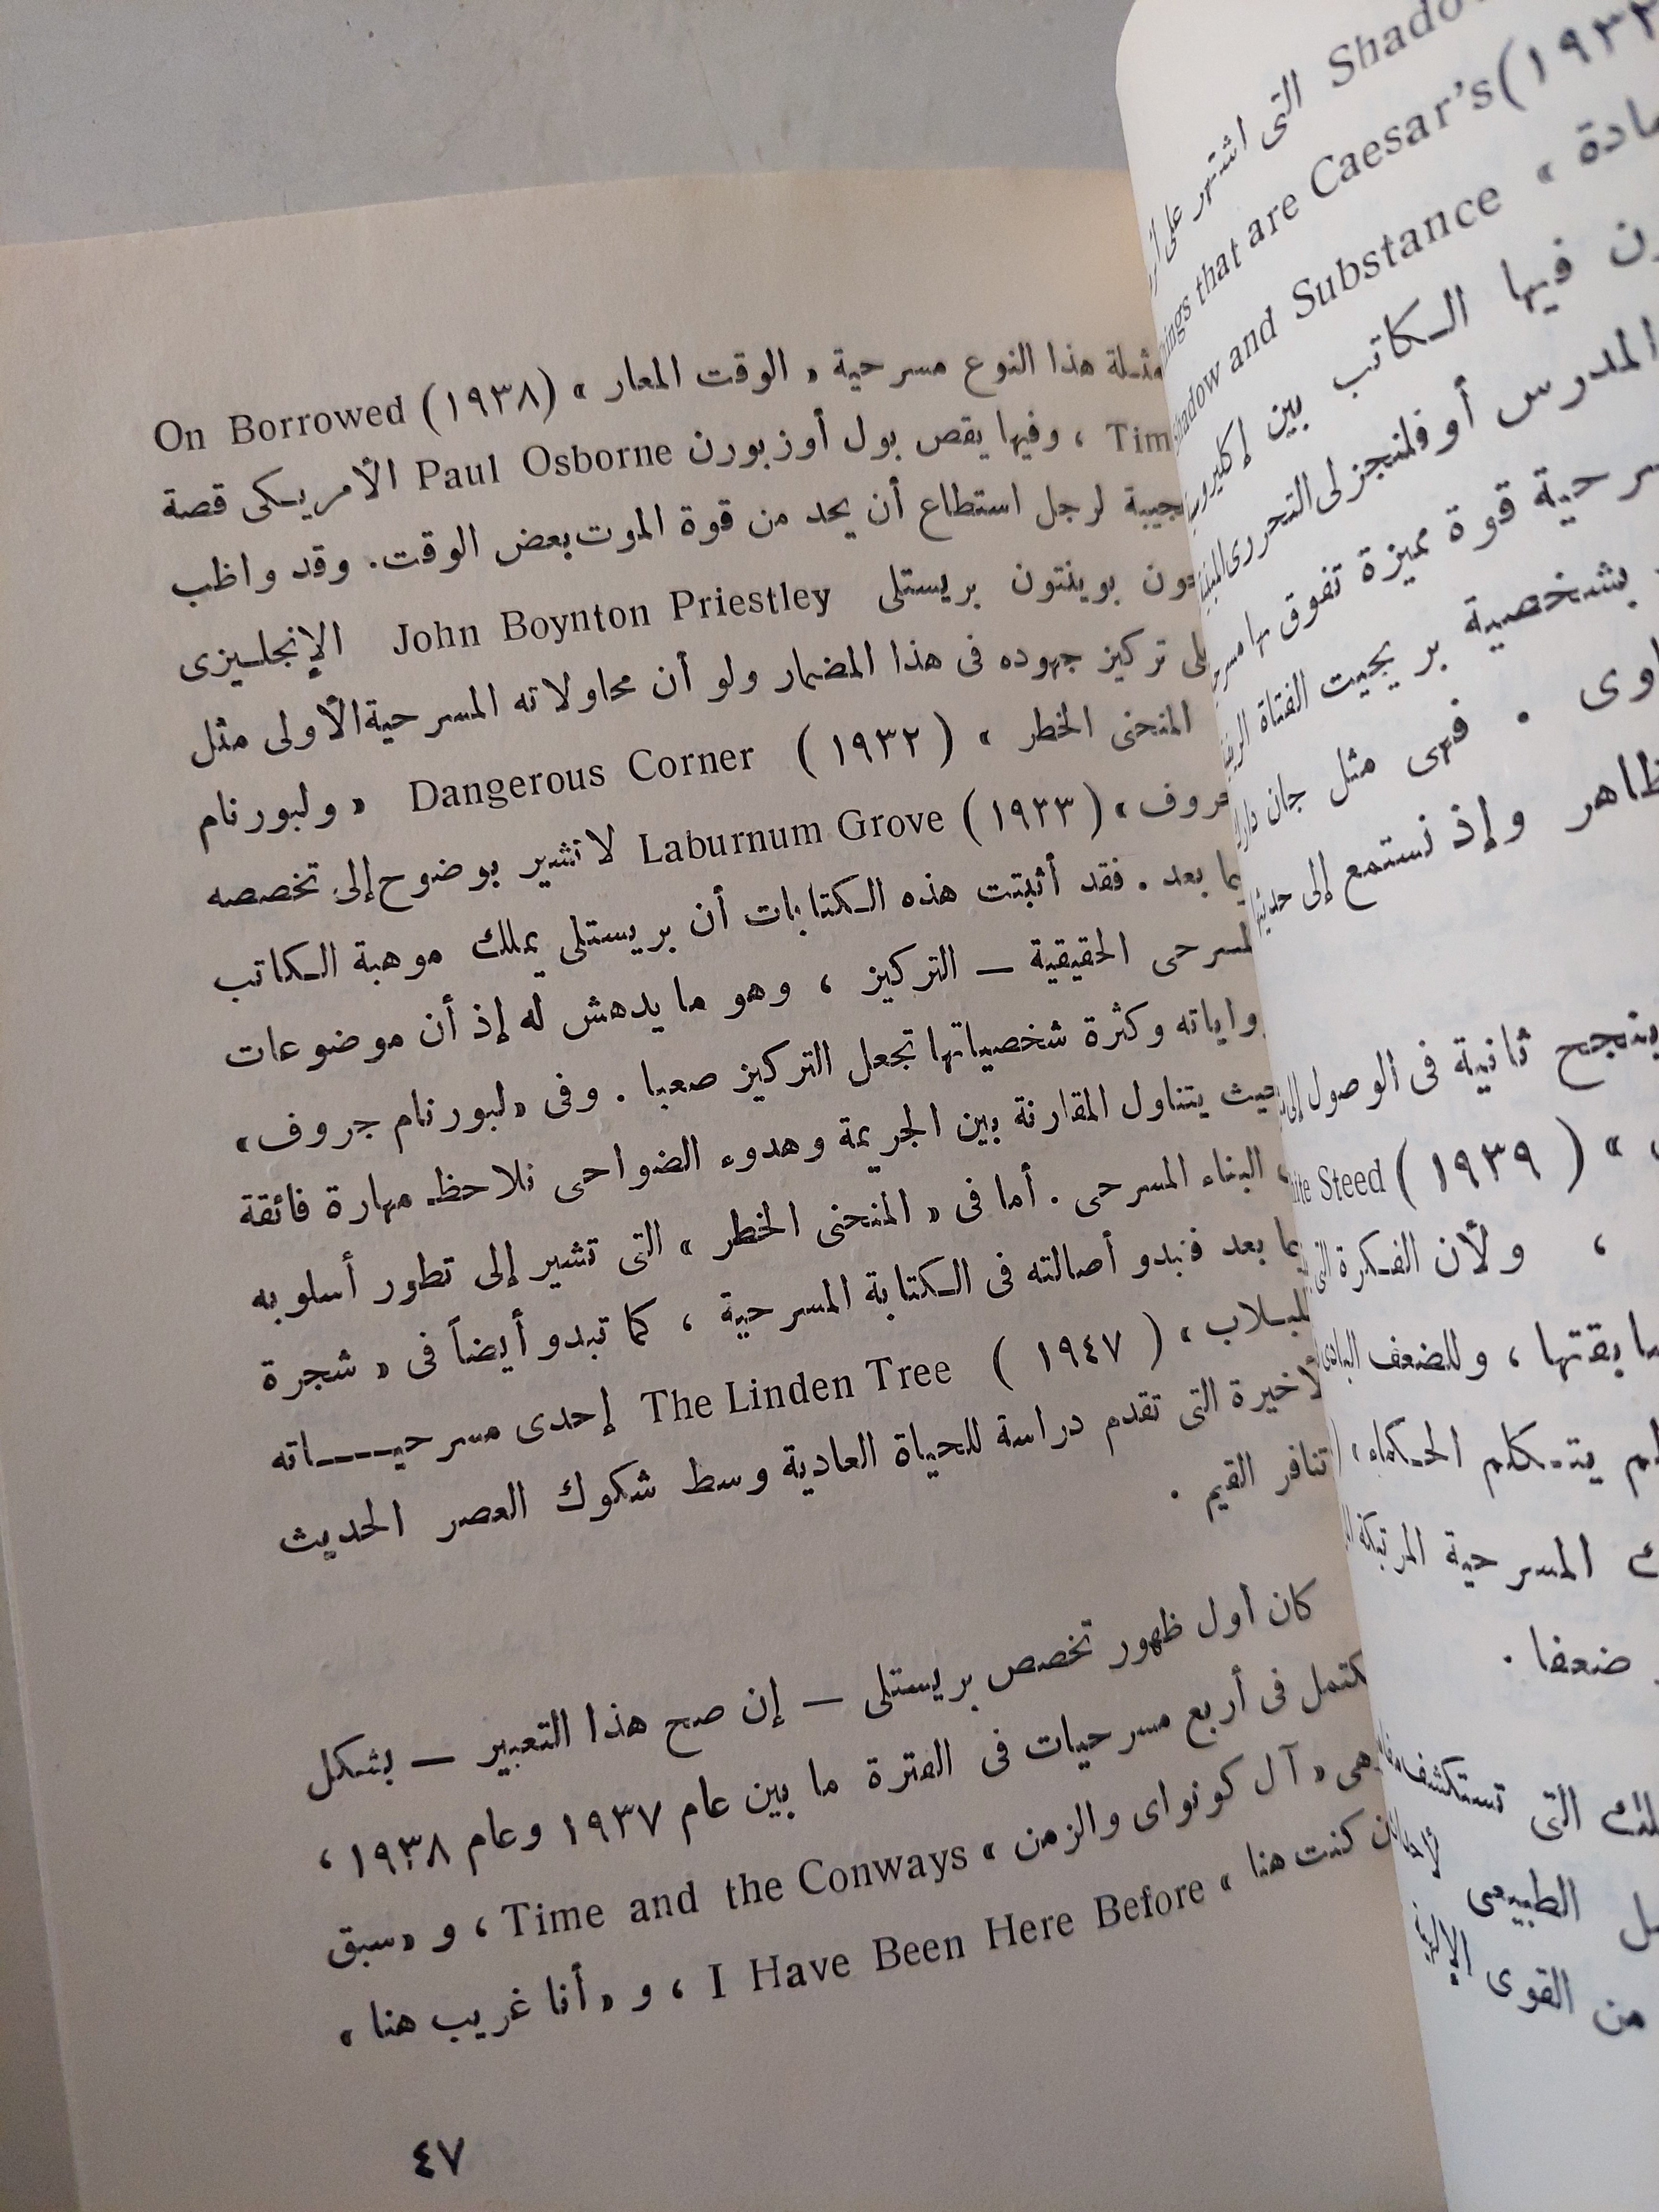 هذا النوع مسرحية « الوقت المعار » (١٩٣٨) On Borrowed
، وفيها يقص بول أوزبورن Paul Osborne الأمريكى قصة
لرجل استطاع أن يحد من قوة الموت بعض الوقت. وقد واظب
بوينتون بريستلى John Boynton Priestley الإنجليزى
تركيز جهوده فى هذا المضمار ولو أن محاولاته المسرحية الأولى مثل
المنحنى الخطر » ( ١٩٣٢ ) Dangerous Corner « ولبورنام
» (١٩٣٣) Laburnum Grove لا تشير بوضوح إلى تخصصه
بعد . فقد أثبتت هذه الكتابات أن بريستلى يملك موهبة الكاتب
الحقيقية — التركيز ، وهو ما يدهش له إذ أن موضوعات
وكثرة شخصياتها تجعل التركيز صعبا . وفى « لبورنام جروف »
حيث يتناول المقارنة بين الجريمة وهدوء الضواحى نلاحظ مهارة فائقة
البناء المسرحى . أما فى « المنحنى الخطر » التى تشير إلى تطور أسلوبه
بعد فتبدو أصالته فى الكتابة المسرحية ، كما تبدو أيضاً فى « شجرة
» ( ١٩٤٧ ) The Linden Tree إحدى مسرحيـــاته
التى تقدم دراسة للحياة العادية وسط شكوك العصر الحديث
تنافر القيم .
كان أول ظهور تخصص بريستلى — إن صح هذا التعبير — بشكل
فى أربع مسرحيات فى الفترة ما بين عام ١٩٣٧ وعام ١٩٣٨ ،
« آل كونواى والزمن » Time and the Conways ، و « سبق
كنت هنا » I Have Been Here Before ، و « أنا غريب هنا »
٤٧
التى اشترك
that are Caesar's (
and Substance »
فيها الكاتب بين
المدرس أوفلنجزلى التحررى
قوة مميزة تفوق بها
بشخصية بريجيت الفتاة
. فهى مثل جان دارك
وإذ نستمع إلى
ثانية فى الوصول
» ( ١٩٣٩ ) Steed
، ولأن الفكرة
، وللضعف البادى
يتكلم الحكماء
المسرحية المرتبكة
ضعفا .
التى تستكشف
الطبيعى
من القوى